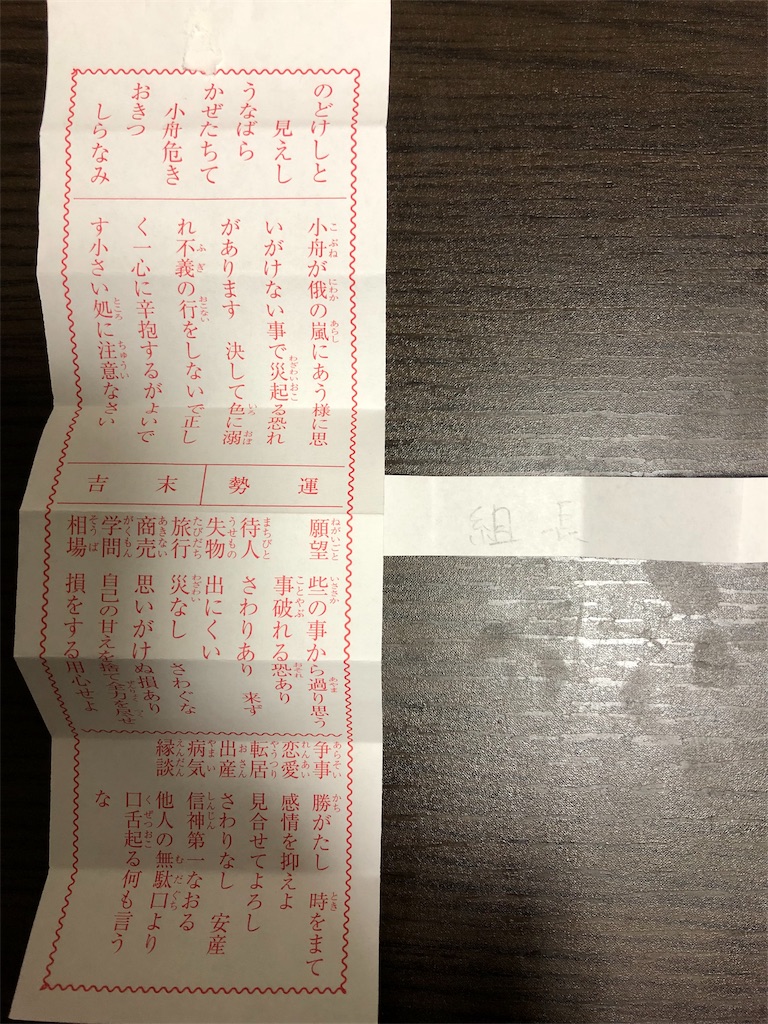 のどけしと
見えし
うなばら
かぜたちて
小舟危き
おきつ
しらなみ
小舟が俄の嵐にあう様に思
いがけない事で災起る恐れ
があります 決して色に溺
れ不義の行をしないで正し
く一心に辛抱するがよいで
す小さい処に注意なさい
運勢 末吉
願望 些の事から過り思う
事破れる恐あり
待人 さわりあり 来ず
失物 出にくい
旅行 災なし さわぐな
商売 思いがけぬ損あり
学問 自己の甘えを捨て全力を尽せ
相場 損をする用心せよ
争事 勝がたし 時をまて
恋愛 感情を抑えよ
転居 見合せてよろし
出産 さわりなし 安産
病気 信神第一なおる
縁談 他人の無駄口より
口舌起る何も言う
な
組長